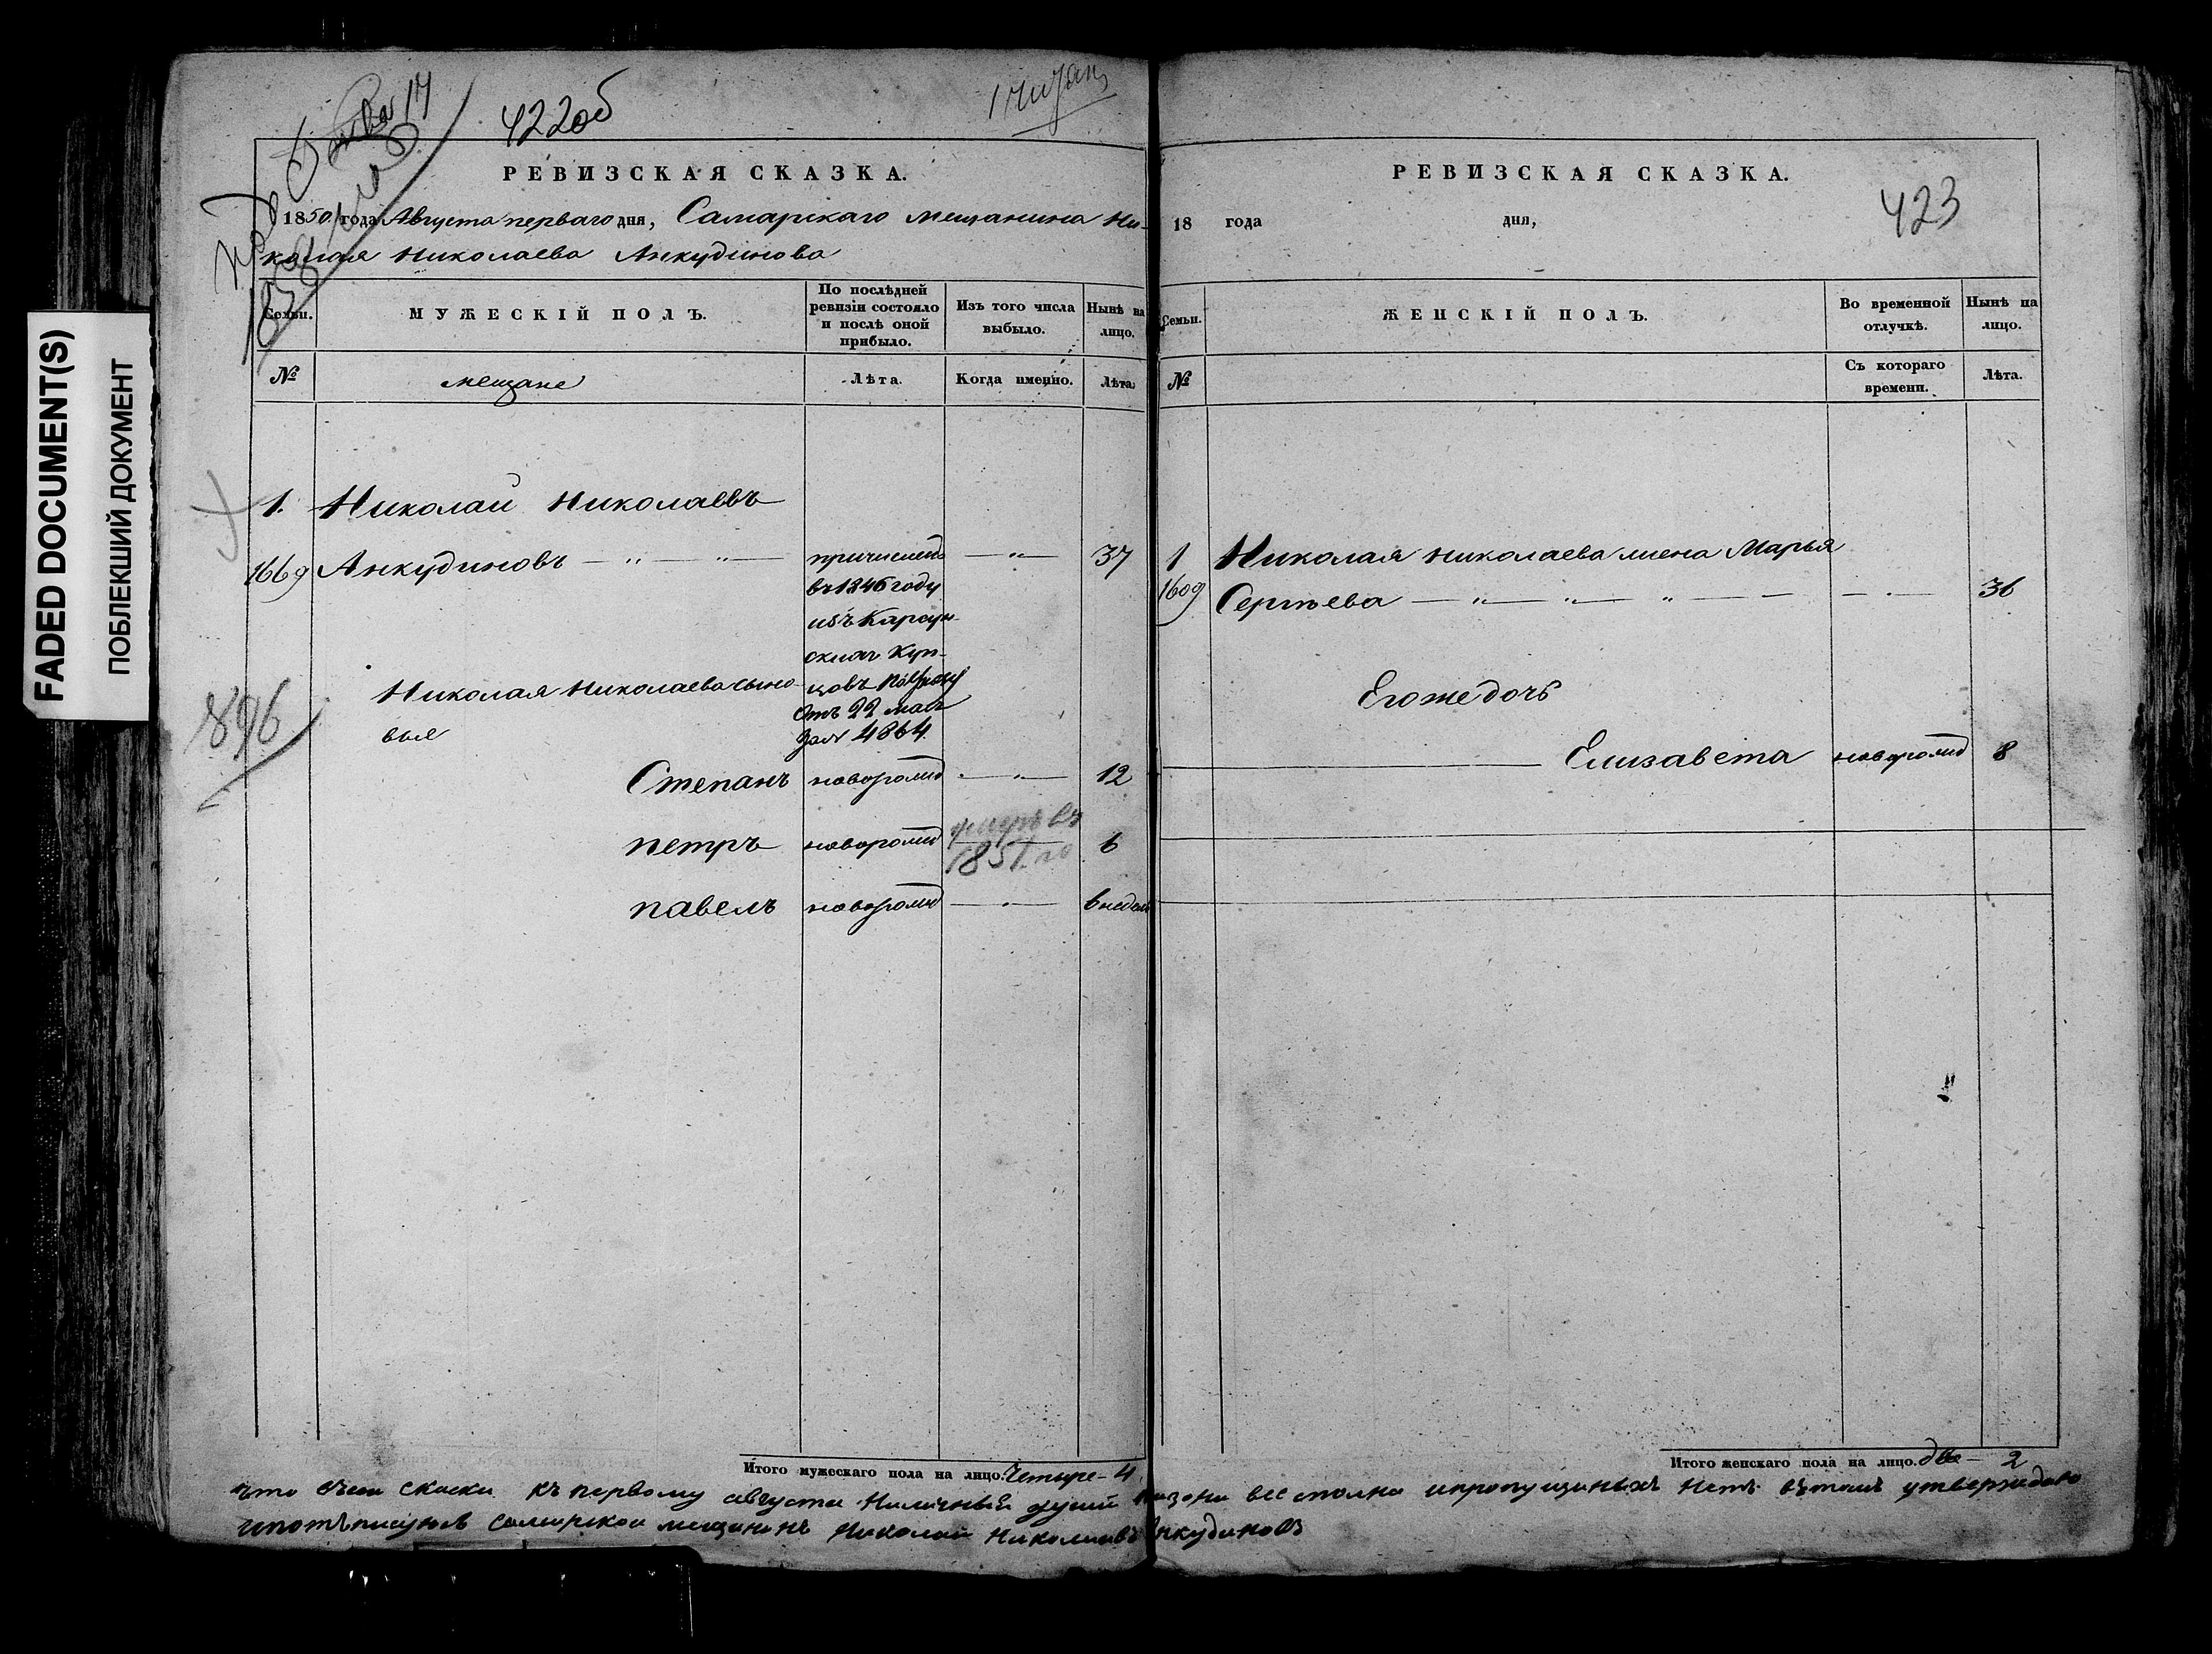 FADED DOCUMENT(S)
ПОБЛЕКШИЙ ДОКУМЕНТ
422об
РЕВИЗСКАЯ СКАЗКА.
1850 года Августа перваго дня, Самарскаго мещанина Ни-
колая Николаева Анкудинова
Семьи.
МУЖЕСКІЙ ПОЛЪ.
По послѣдней ревизіи состояло и послѣ оной прибыло.
Изъ того числа выбыло.
Нынѣ на лицо.
№
мещане
Лѣта.
Когда именно.
Лѣта.
1. Николай Николаевъ
1669 Анкудиновъ — " — " — причислено — " — 37
въ 1846 году
изъ Карсун-
скихъ куп-
Николая Николаева сыно- цовъ
вья
отъ 22 мая
за № 4864
Степанъ новорожд — " — 12
петръ новорожд 6
умеръ въ
1851 го
павелъ новорожд — " — 6 недель
896
Итого мужескаго пола на лицо. Четыре - 4
РЕВИЗСКАЯ СКАЗКА.
423
18 года дня,
Семьи.
ЖЕНСКІЙ ПОЛЪ.
Во временной отлучкѣ.
Нынѣ на лицо.
№
Съ котораго времени.
Лѣта.
1 Николая Николаева жена Марья
1609 Сергѣева — " — " — " — — — 36
Его же дочь
Елизавета новорожд 8
Итого женскаго пола на лицо. две - 2
что въ сей скаски къ первому августа наличные души показани все сполна и пропущиныхъ нетъ вътомъ утверждаю
ипотъписуюсь самарской мещининъ Николай Николаивъ Анкудиновъ